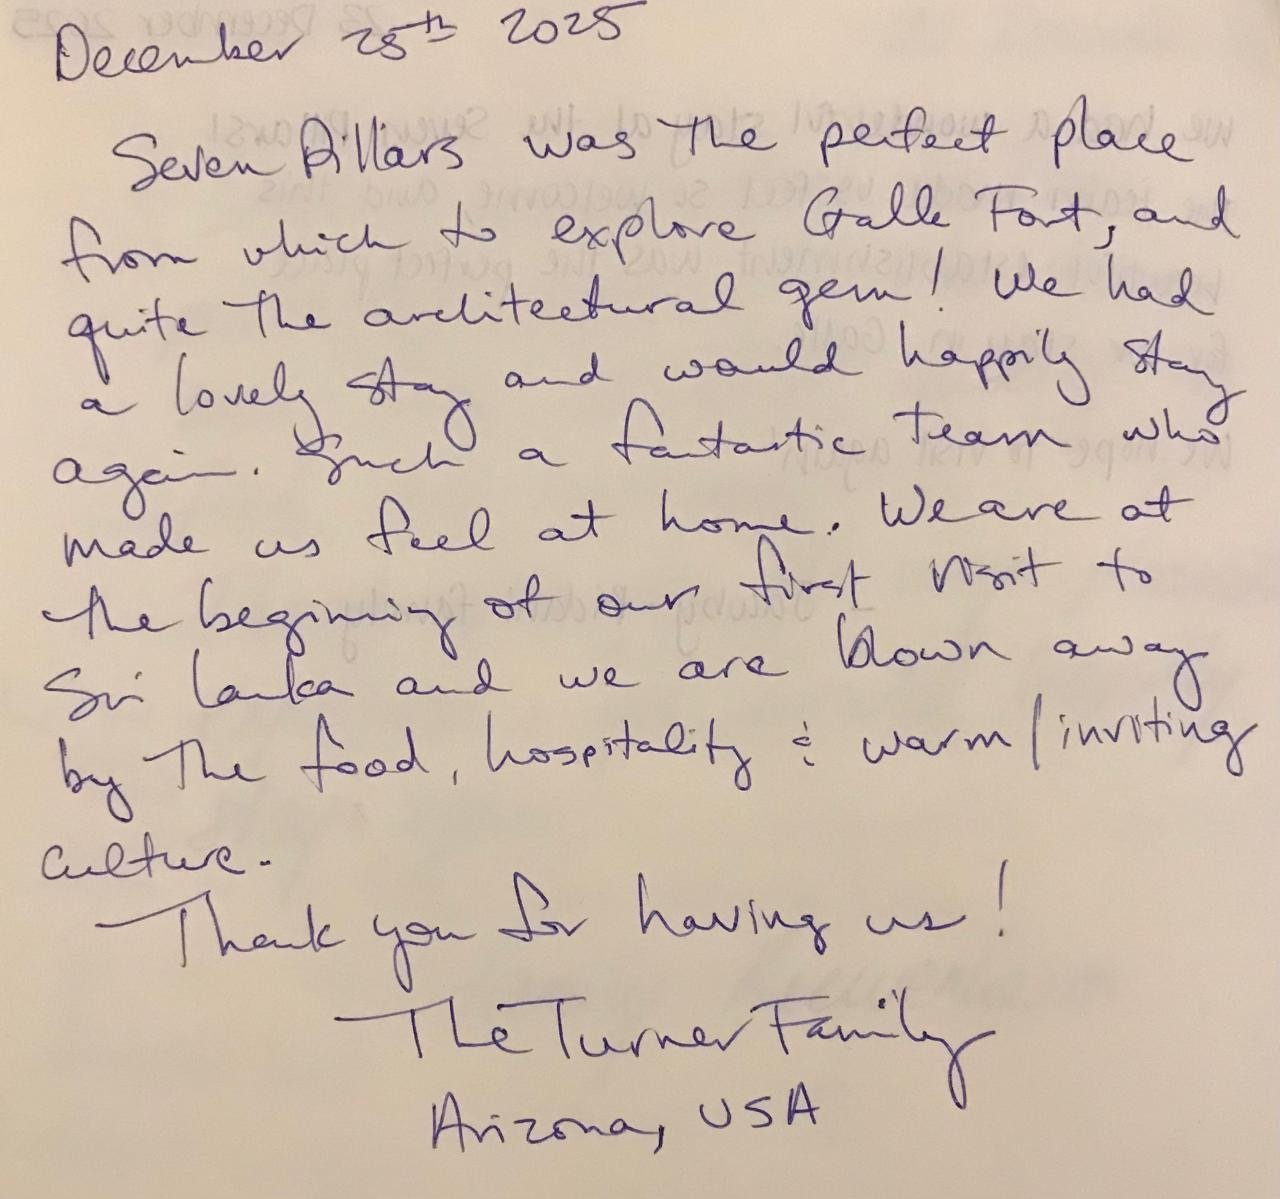 December 25th 2025
Seven Pillars was the perfect place
from which to explore Galle Fort, and
quite the architectural gem! We had
a lovely stay and would happily stay
again. Such a fantastic team who
made us feel at home. We are at
the beginning of our first visit to
Sri Lanka and we are blown away
by the food, hospitality & warm/inviting
culture.
Thank you for having us!
The Turner Family
Arizona, USA